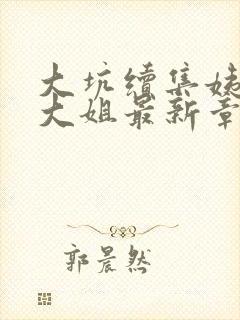 大坑续集姊
大姐最新章
郭晨然